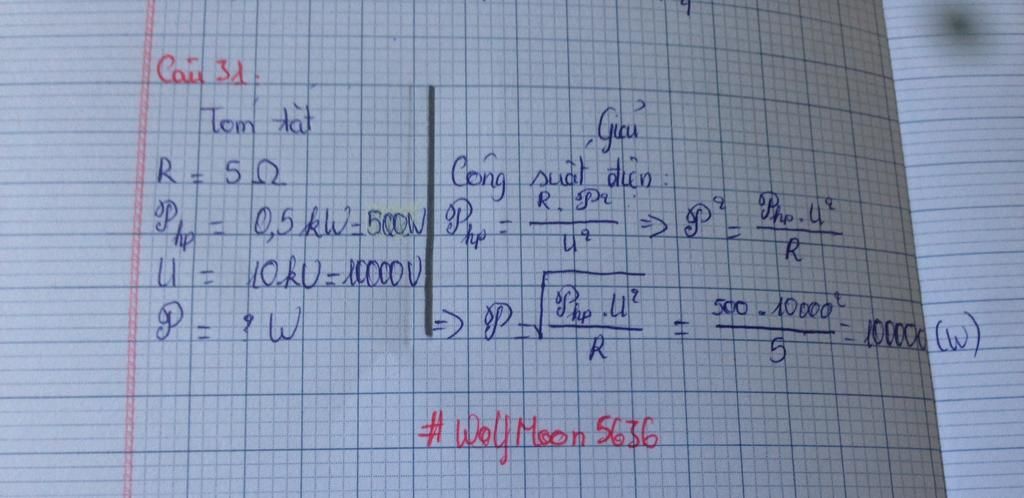 Câu 31.
Tóm tắt
R = 5 Ω
𝒫hp = 0,5 kW = 500W
U = 10 kV = 10000V
𝒫 = ? W
Giải
Công suất điện:
𝒫hp = R . 𝒫² / U² => 𝒫² = 𝒫hp . U² / R
=> 𝒫 = √(𝒫hp . U² / R) = 500 . 10000² / 5 = 100000 (W)
# WolfMoon 5636